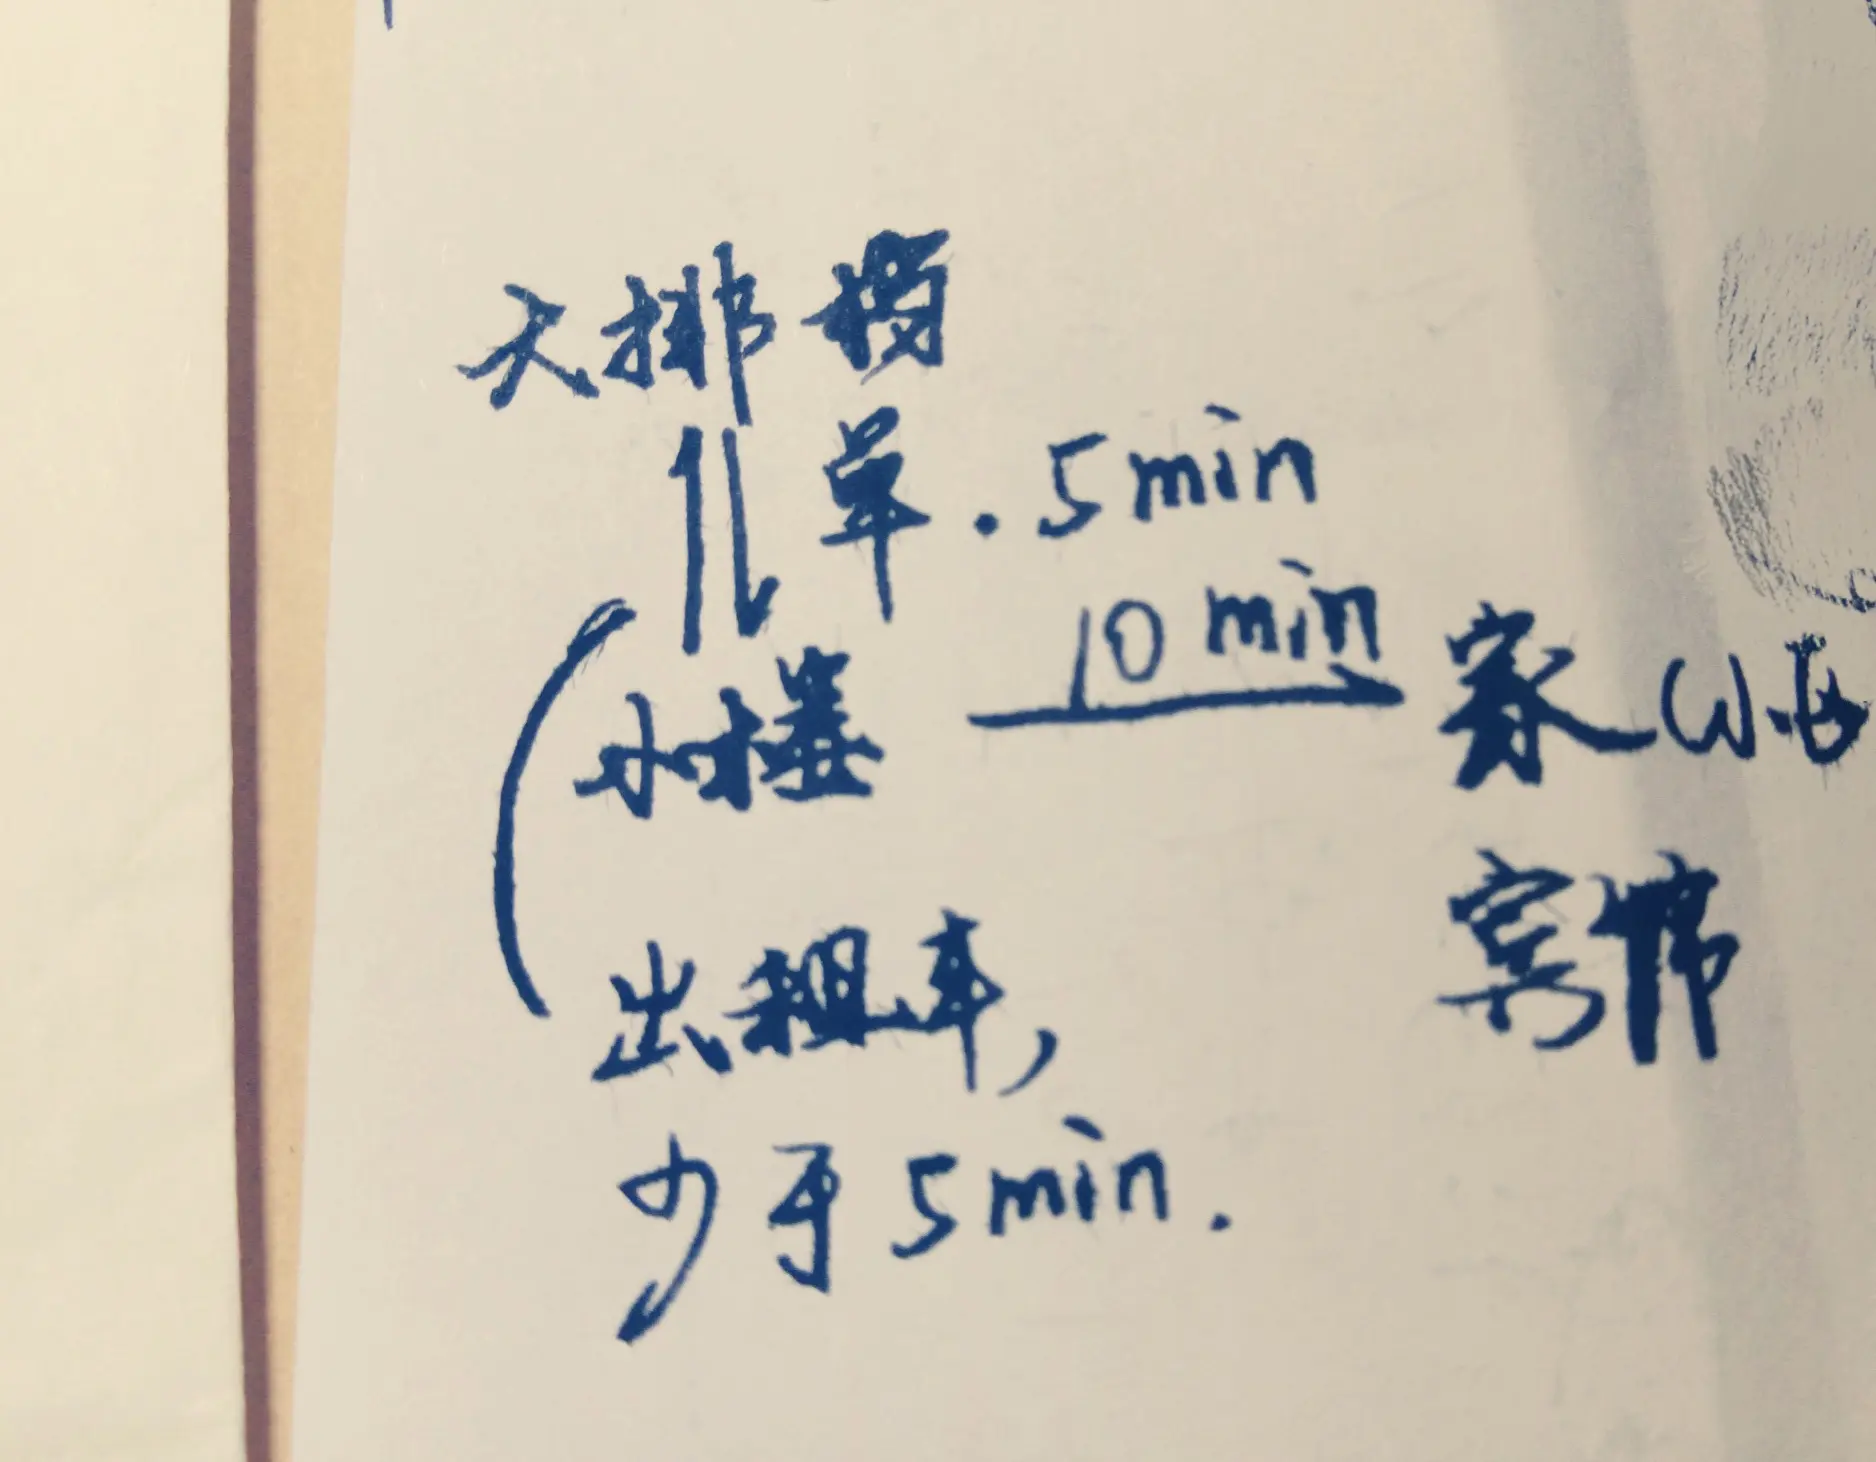 大排档
单.5min
小楼 10min 家
宾馆
出租车,
少于5min.